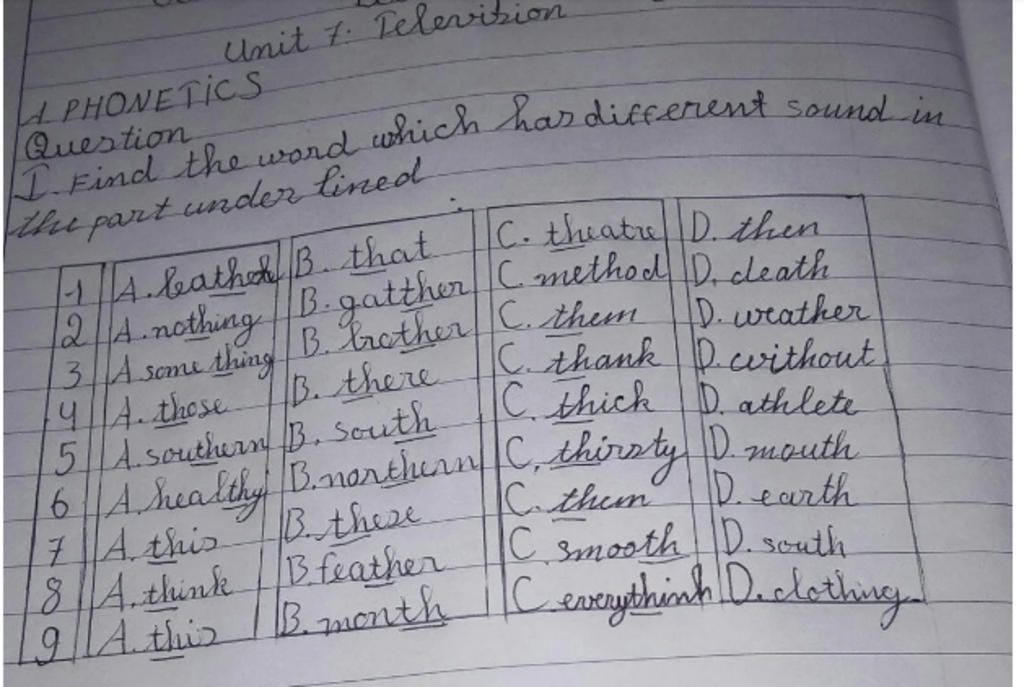 Unit 7: Television
A PHONETICS
Question
I. Find the word which has different sound in
the part under lined
1 A. leather B. that C. theatre D. then
2 A. nothing B. gatther C. method D. death
3 A some thing B. brother C. them D. weather
4 A. those B. there C. thank D. without
5 A. southern B. south C. thick D. athlete
6 A. healthy B. northern C. thirsty D. mouth
7 A. this B. these C. them D. earth
8 A. think B. feather C. smooth D. south
9 A. this B. month C everythinh D. clothing